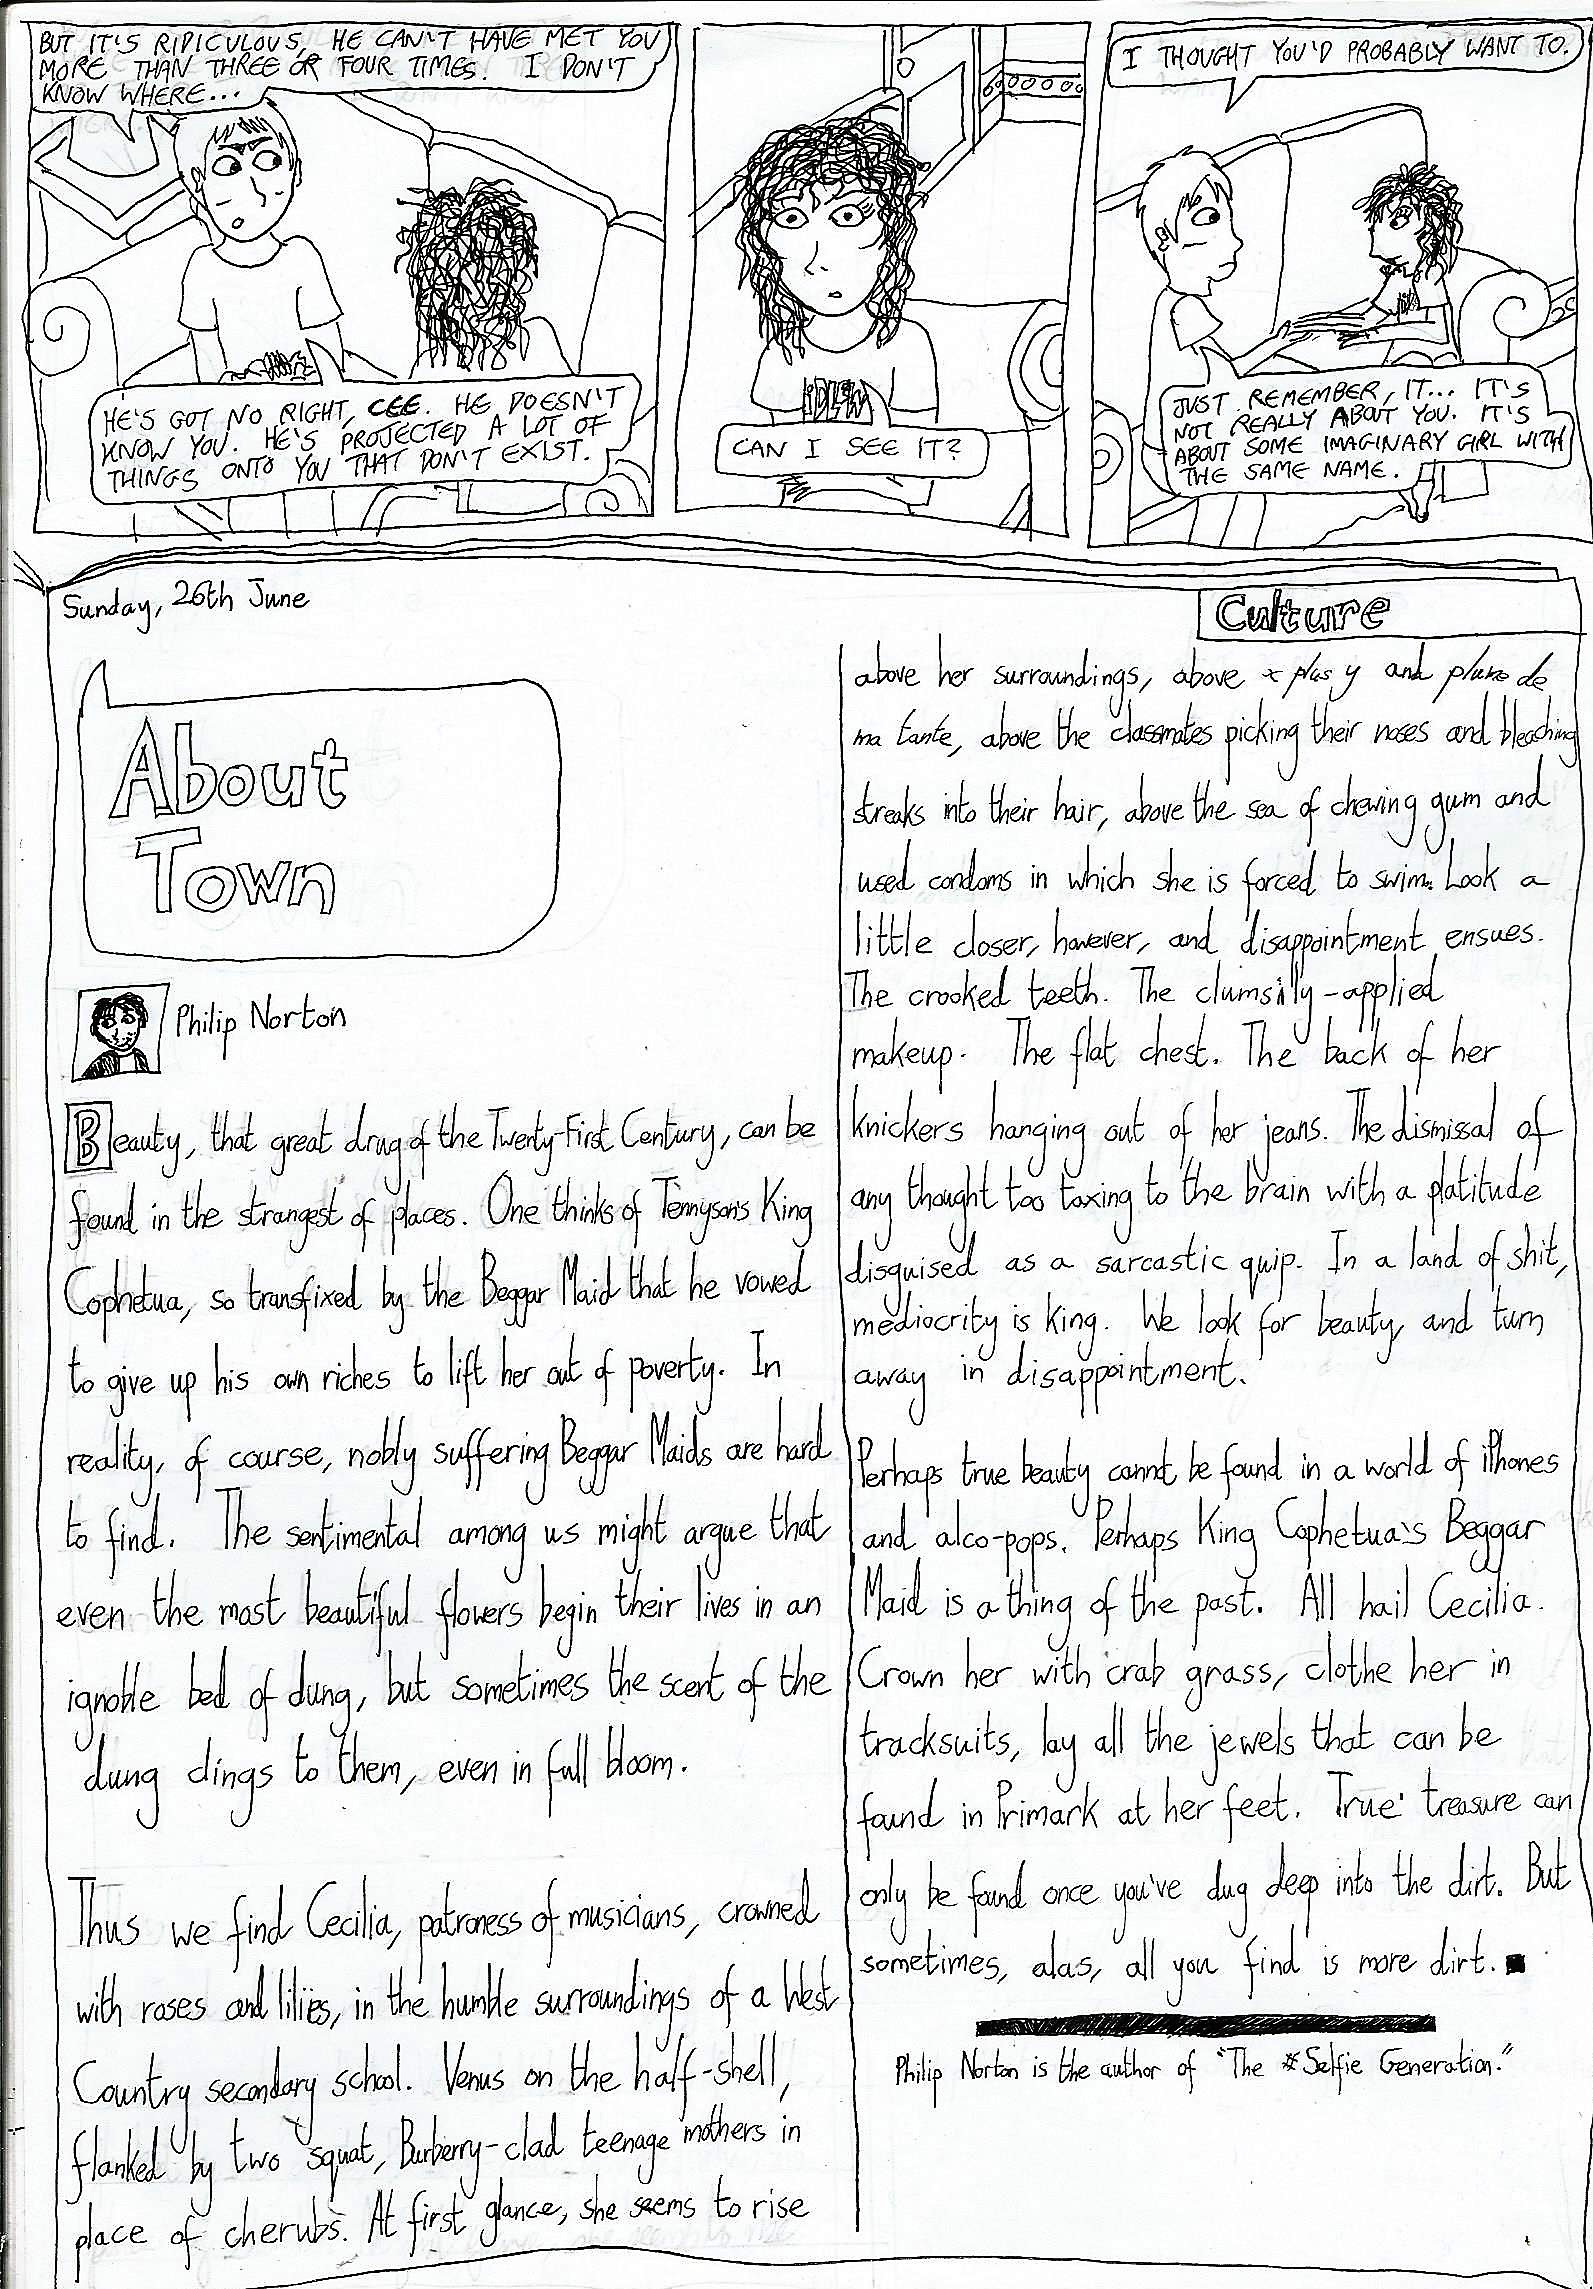 BUT IT'S RIDICULOUS, HE CAN'T HAVE MET YOU
MORE THAN THREE OR FOUR TIMES. I DON'T
KNOW WHERE...
HE'S GOT NO RIGHT, CEE. HE DOESN'T
KNOW YOU. HE'S PROJECTED A LOT OF
THINGS ONTO YOU THAT DON'T EXIST.
CAN I SEE IT?
I THOUGHT YOU'D PROBABLY WANT TO.
JUST REMEMBER, IT... IT'S
NOT REALLY ABOUT YOU. IT'S
ABOUT SOME IMAGINARY GIRL WITH
THE SAME NAME.
Sunday, 26th June
Culture
About
Town
Philip Norton
Beauty, that great drug of the Twenty-First Century, can be
found in the strangest of places. One thinks of Tennyson's King
Cophetua, so transfixed by the Beggar Maid that he vowed
to give up his own riches to lift her out of poverty. In
reality, of course, nobly suffering Beggar Maids are hard
to find. The sentimental among us might argue that
even the most beautiful flowers begin their lives in an
ignoble bed of dung, but sometimes the scent of the
dung clings to them, even in full bloom.
Thus we find Cecilia, patroness of musicians, crowned
with roses and lilies, in the humble surroundings of a West
Country secondary school. Venus on the half-shell,
flanked by two squat, Burberry-clad teenage mothers in
place of cherubs. At first glance, she seems to rise
above her surroundings, above x plus y and plume de
ma tante, above the classmates picking their noses and bleaching
streaks into their hair, above the sea of chewing gum and
used condoms in which she is forced to swim. Look a
little closer, however, and disappointment ensues.
The crooked teeth. The clumsily-applied
makeup. The flat chest. The back of her
knickers hanging out of her jeans. The dismissal of
any thought too taxing to the brain with a platitude
disguised as a sarcastic quip. In a land of shit,
mediocrity is king. We look for beauty, and turn
away in disappointment.
Perhaps true beauty cannot be found in a world of iPhones
and alco-pops. Perhaps King Cophetua's Beggar
Maid is a thing of the past. All hail Cecilia.
Crown her with crab grass, clothe her in
tracksuits, lay all the jewels that can be
found in Primark at her feet. True treasure can
only be found once you've dug deep into the dirt. But
sometimes, alas, all you find is more dirt.
Philip Norton is the author of "The #Selfie Generation."